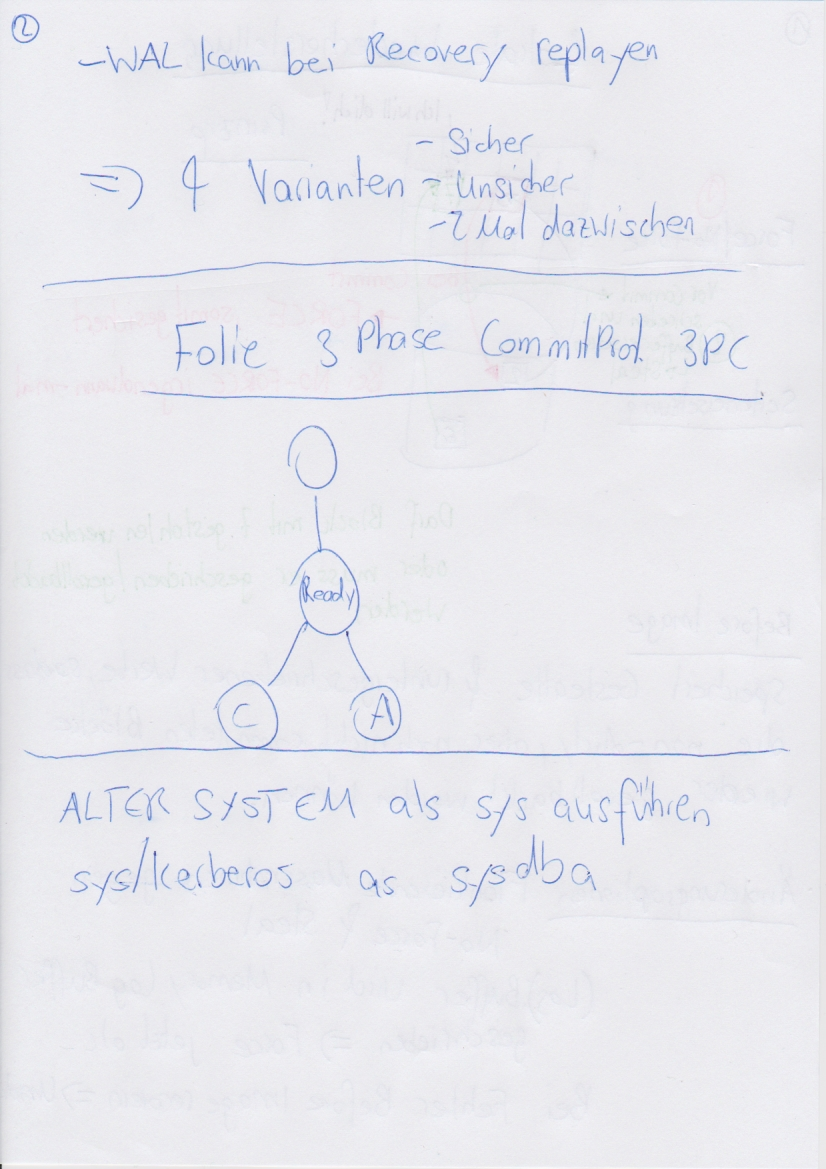 ②
- WAL kann bei Recovery replayen
=> 4 Varianten - Sicher
- Unsicher
- 2 Mal dazwischen
Folie 3 Phase CommitProt. 3PC
Ready
C A
ALTER SYSTEM als sys ausführen
sys/kerberos as sysdba